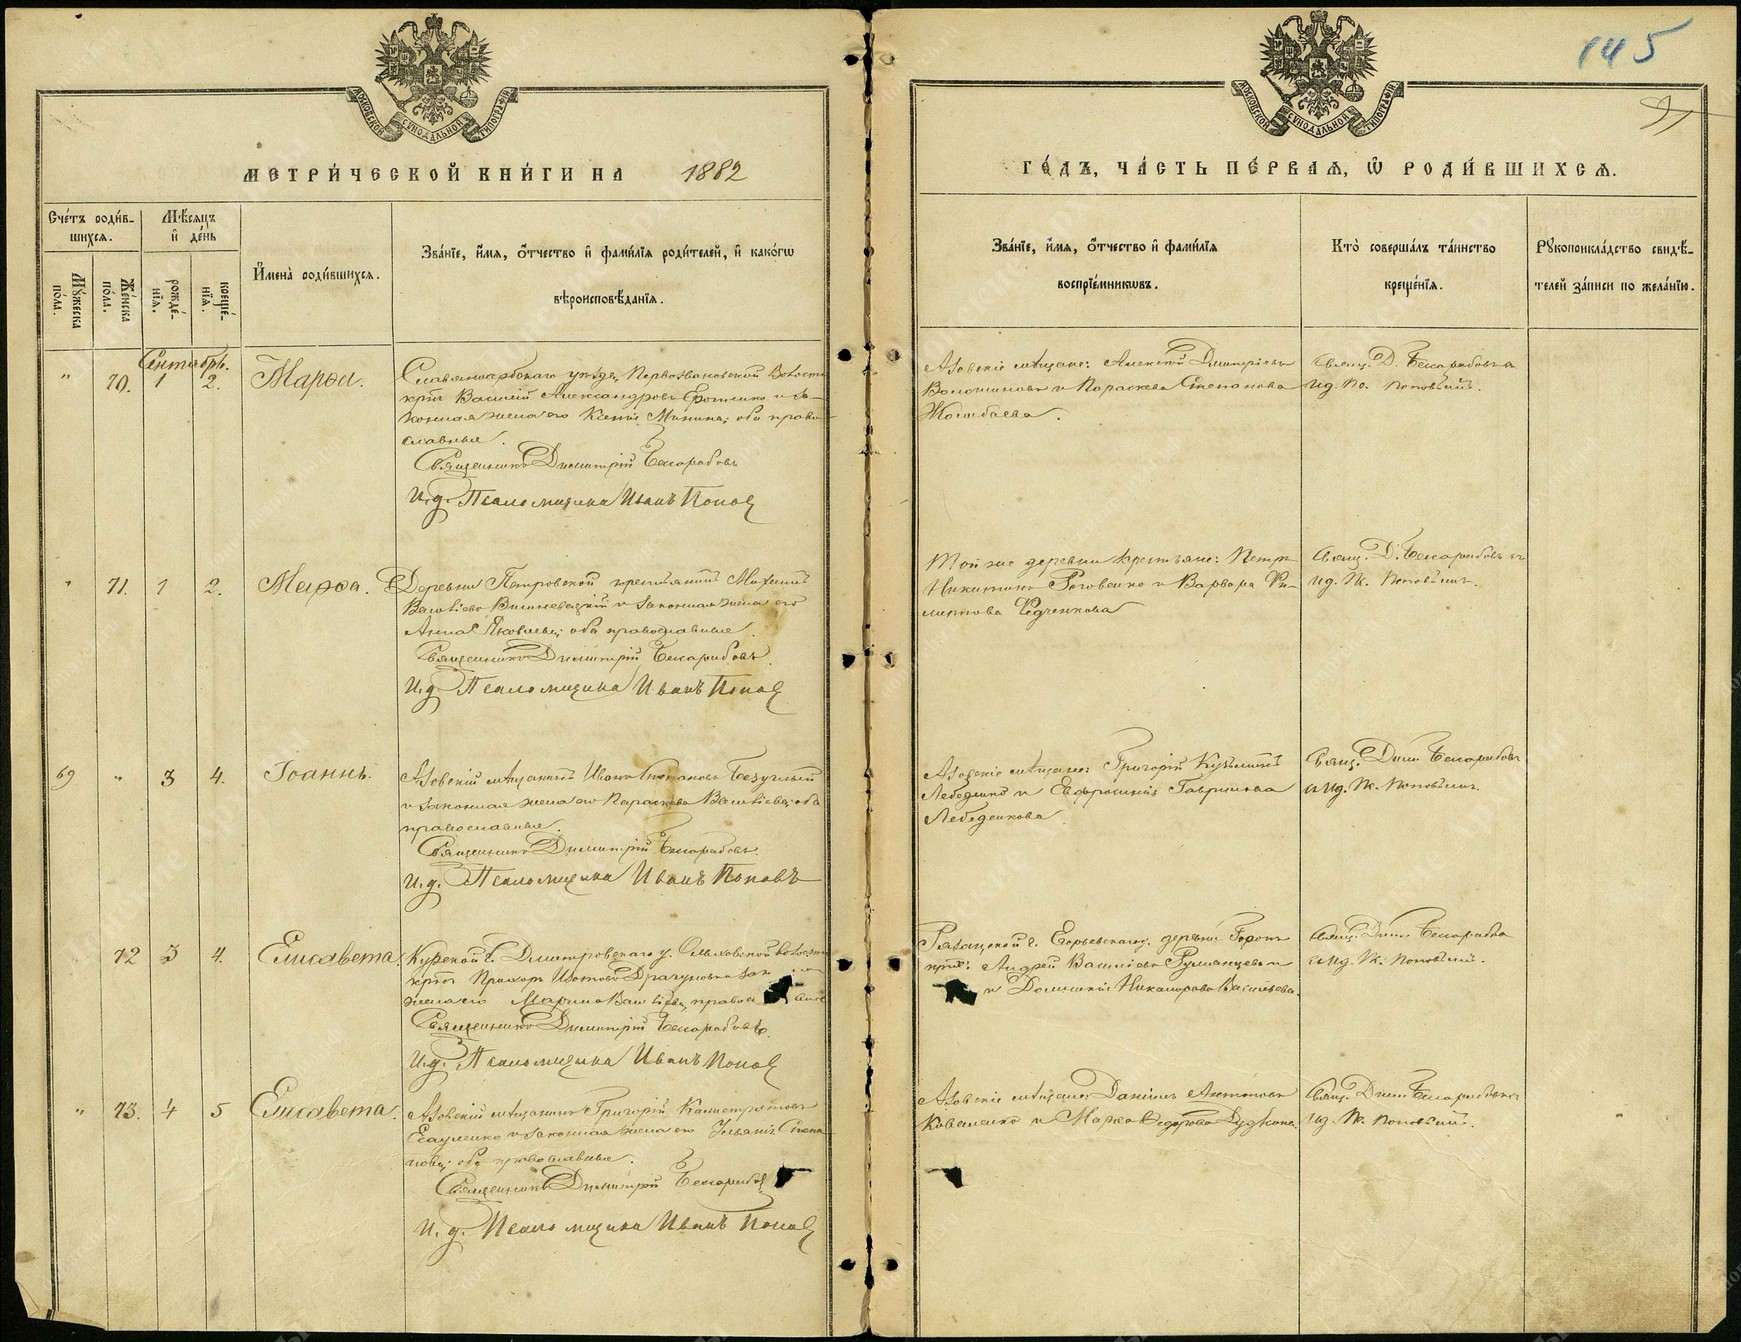 145
91
МОСКОВСКОЙ СѴНОДАЛЬНОЙ ТИПОГРАФІИ
МОСКОВСКОЙ СѴНОДАЛЬНОЙ ТИПОГРАФІИ
МЕТРИ́ЧЕСКОЙ КНИ́ГИ НА 1882
ГО́ДЪ, ЧА́СТЬ ПЕ́РВАЯ, Ѡ҆ РОДИ́ВШИХСЯ.
Сче́тъ роди́в-
шихся.
Мѣ́сяцъ
и҆ де́нь
Му́жеска
по́ла.
Же́нска
по́ла.
рожде́-
нїя.
креще́-
нїя.
И҆мена̀ роди́вшихся.
Зва́нїе, и҆́мя, ѻ҆́тчество и҆ фами́лїя роди́телей, и҆ како́гѡ
вѣроисповѣ́данїя.
Зва́нїе, и҆́мя, ѻ҆́тчество и҆ фами́лїя
воспрїе́мниковъ.
Кто̀ соверша́лъ та́инство
креще́нїя.
Рꙋкоприкла́дство свидѣ́-
телей за́писи по жела́нїю.
Сентябрь.
" 70. 1 2. Марѳа.
Славяносербскаго уѣзда, Первозвановской Волости
крн. Василій Александровъ Ерошенко и за-
конная жена его Ксенія Минина, оба право-
славные.
Священникъ Димитрій Бесарабовъ
И.д. Псаломщика Иванъ Поповъ
Азовскіе мѣщане: Алексій Димитріевъ
и Параскева Степанова
Свящ. Д. Бесарабовъ
и.д. Пс. Поповымъ.
" 71. 1 2. Марѳа.
Деревни Петровской крестьянинъ
Василіевъ Вишневецкій и законная жена его
Анна Яковлева, оба православные.
Священникъ Димитрій Бесарабовъ.
И.д. Псаломщика Иванъ Поповъ
Той же деревни крестьяне: Петръ
Никитинъ Роговенко и Варвара Фи-
липова Федченкова
Свящ. Д. Бесарабовъ съ
и.д. Пс. Поповымъ.
69 " 3 4. Іоаннъ.
Азовскій мѣщанинъ Иванъ Степановъ Безуглый
и законная жена его Параскева Василіева, оба
православные.
Священникъ Димитрій Бесарабовъ.
И.д. Псаломщика Иванъ Поповъ
Азовскіе мѣщане: Григорій Кузьминъ
Лебеденко и Евфросинія Гаврилова
Лебеденкова.
Свящ. Дим. Бесарабовъ
съ и.д. Пс. Поповымъ.
72 3 4. Елисавета.
Курской г. Дмитровскаго у. Волости
крн. Прохоръ Драгуновъ и зак
жена его Марина Василіева, правос
Священникъ Димитрій Бесарабовъ.
И.д. Псаломщика Иванъ Поповъ
Рязанской г. Егорьевскаго у. деревни
крн: Андрей Василіевъ Румянцевъ
и Домникія Никанорова Васильева.
Свящ. Дим. Бесарабовъ
съ и.д. Пс. Поповымъ.
" 73. 4 5 Елисавета.
Азовскій мѣщанинъ Григорій Калистратовъ
Есауленко и законная жена его Ульянія Степа-
нова, оба православные.
Священникъ Димитрій Бесарабовъ
И.д. Псаломщика Иванъ Поповъ
Азовскіе мѣщане: Даніилъ Антоновъ
Коваленко и Марѳа Ѳедорова
Свящ. Дим. Бесарабовъ съ
и.д. Пс. Поповымъ.